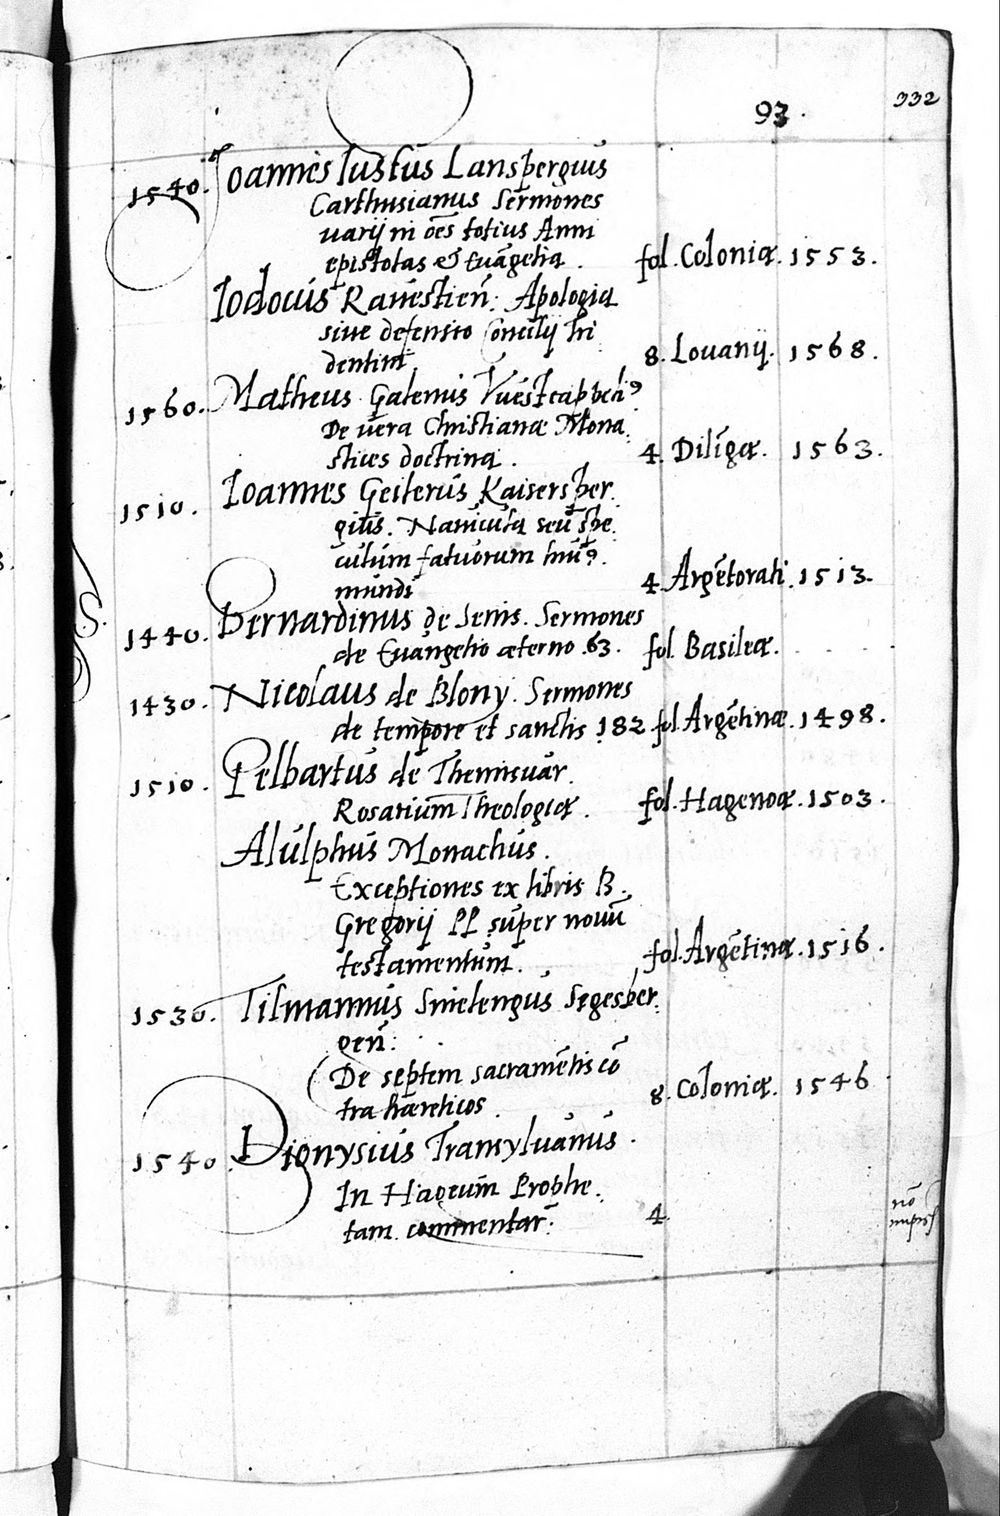 93. 332
1540. Joannes Iustus Lanspergius
Carthusianus Sermones
uarij in oēs totius Anni
epistolas & Euāgelia. fol. Coloniæ. 1553.
Iodocus Rauestień: Apologia
siue defensio Concilij tri
dentini 8. Louanij. 1568.
1560. Matheus Galenus Vuestcappeliꝰ
De uera Christianæ Mona
stices doctrina. 4. Dilīgæ. 1563.
1510. Ioannes Geilerus Kaisersper.
gius. Nauicula seu spe.
culum fatuorum
mundi 4. Argētorati. 1513.
1440. Bernardinus de Senis. Sermones
de Euangelio æterno .63. fol. Basileæ.
1430. Nicolaus de Blony. Sermones
de tempore et sanctis 182 fol. Argētinæ. 1498.
1510. Pelbartus de Themisuar.
Rosarium Theologiæ. fol. Hagenoæ. 1503.
Alulphus Monachus.
Exceptiones ex libris B.
Gregorij PP super nouū
testamentum. fol. Argētinæ. 1516.
1530. Tilmannus Smelengus Segesber.
geń:
De septem sacramētis cō
tra hæreticos. 8. Coloniæ. 1546
1540. Dionysius Transyluanus.
In Hageum Prophe.
tam commentar̄. 4. nō
impres̄